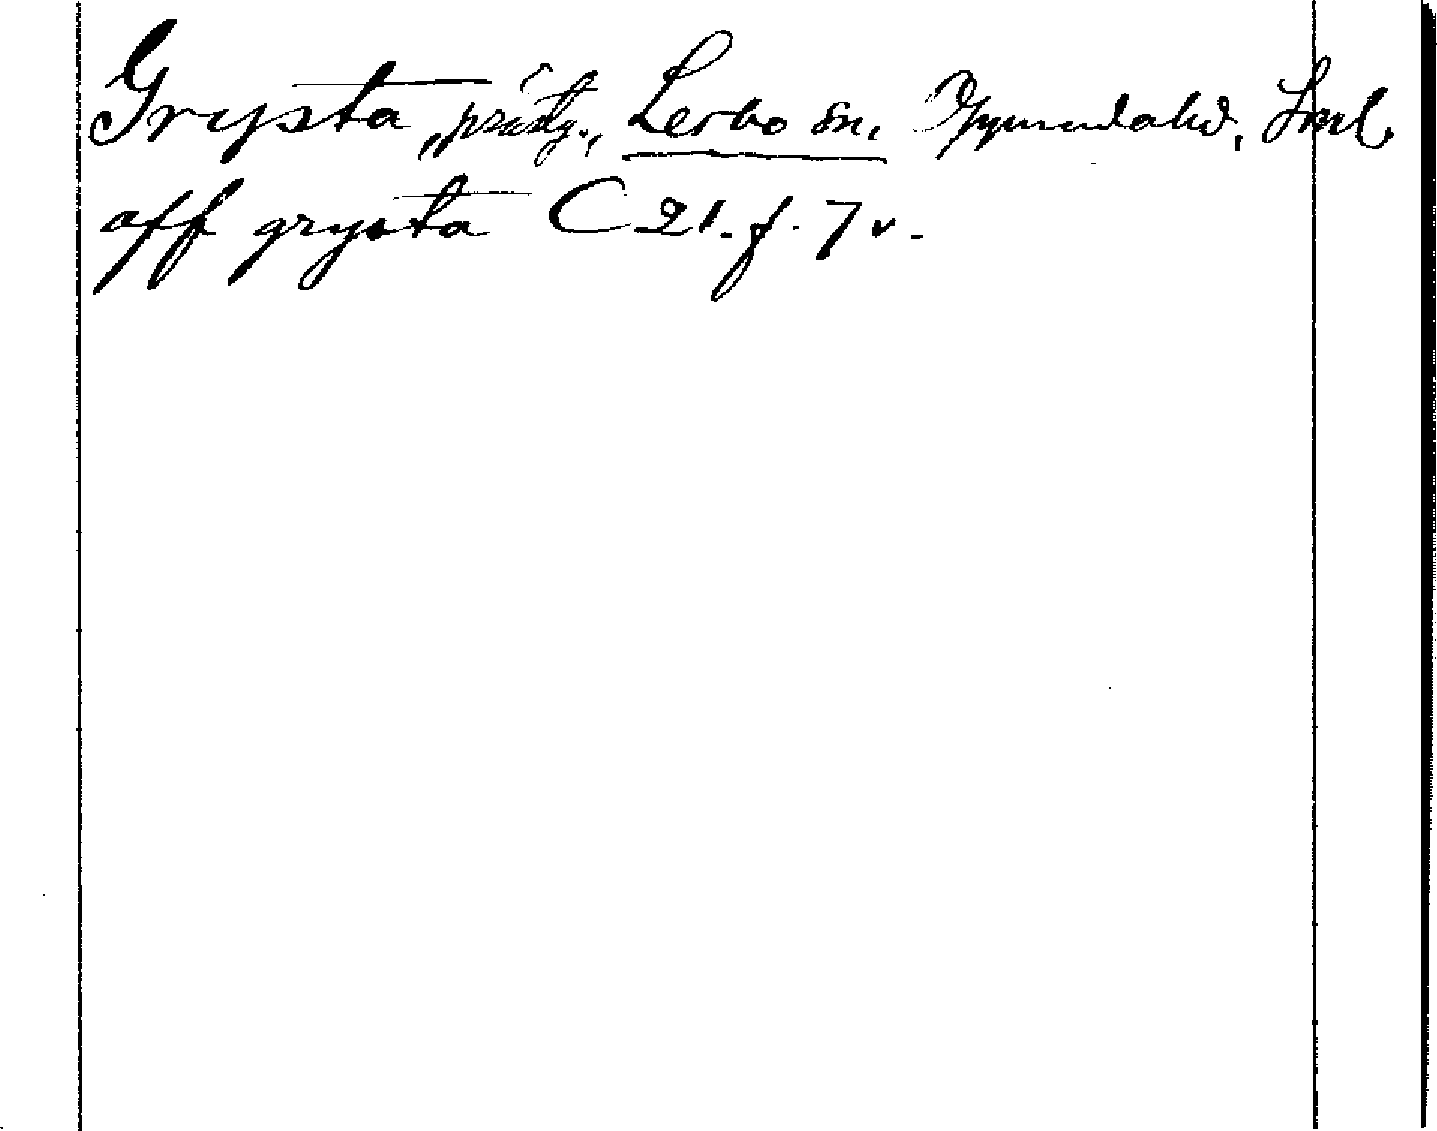 Grysta, prästg., Lerbo sn, Oppundahd, Sml.
aff grysta C 21. f. 7 v.